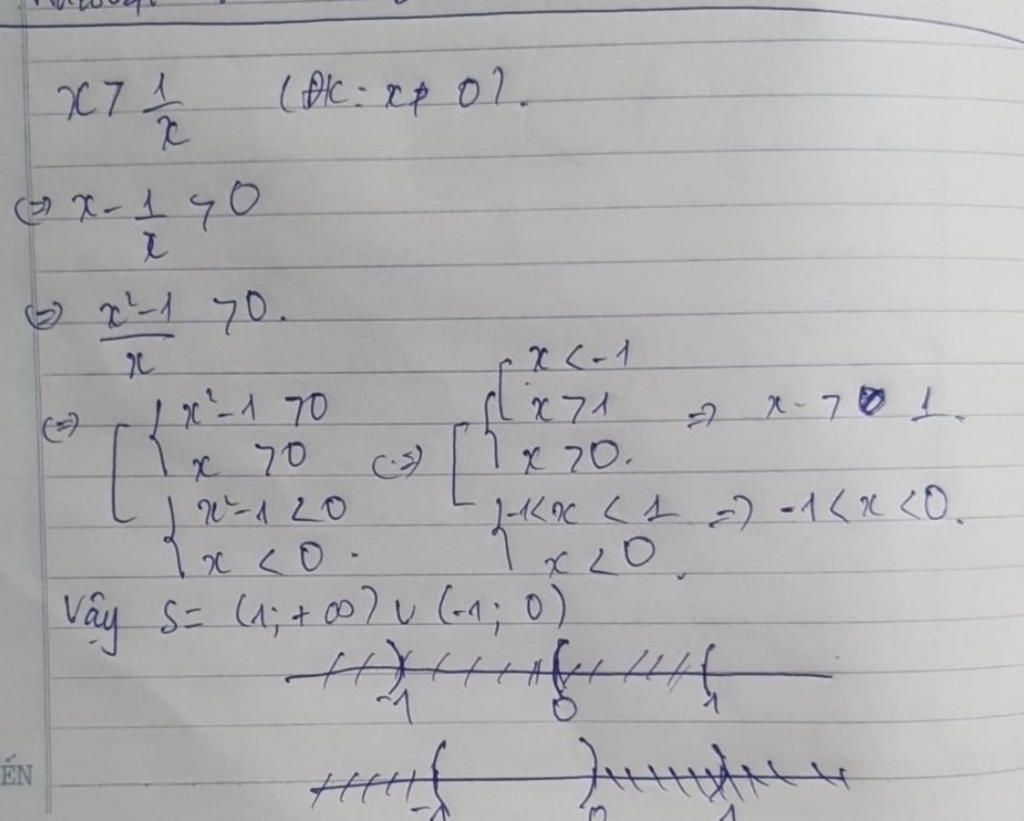 x > 1/x (ĐK: x ≠ 0).
<=> x - 1/x > 0
<=> (x² - 1)/x > 0.
<=> [ { x² - 1 > 0 ; x > 0 <=> [ { [ x < -1 ; x > 1 ; x > 0. => x > 1.
{ x² - 1 < 0 ; x < 0. { -1 < x < 1 ; x < 0. => -1 < x < 0.
Vậy S = (1; +∞) ∪ (-1; 0)
-1 0 1
-1 0 1
ẾN